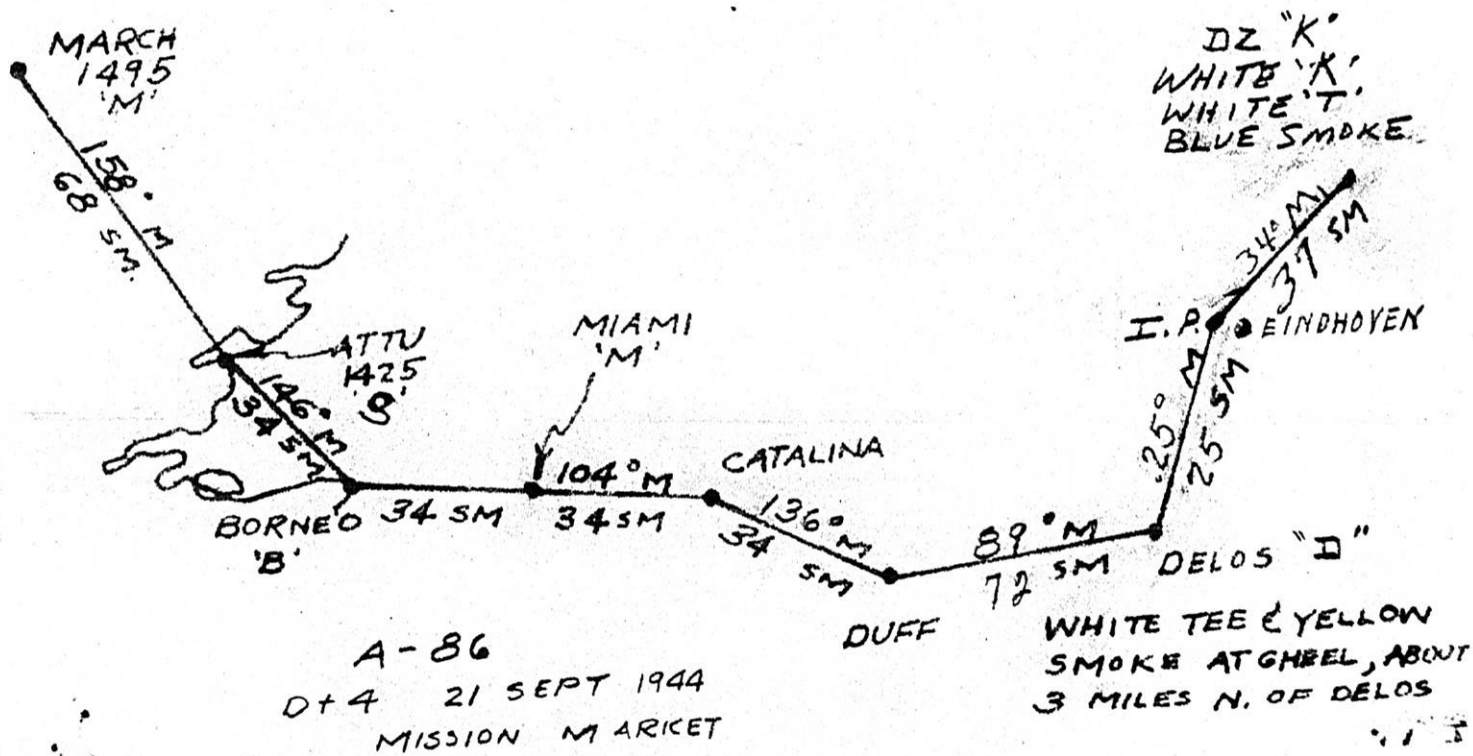 MARCH
1495
'M'
158° M
68 SM.
ATTU
1425
146° M
34 SM
BORNEO
'B'
34 SM
MIAMI
'M'
104° M
34 SM
CATALINA
136° M
34 SM
DUFF
89° M
72 SM
DELOS "D"
WHITE TEE & YELLOW
SMOKE AT GHEEL, ABOUT
3 MILES N. OF DELOS
25° M
25 SM
I.P.
EINDHOVEN
34° M
37 SM
DZ "K"
WHITE 'K'
WHITE 'T'
BLUE SMOKE
A-86
D+4 21 SEPT 1944
MISSION MARKET